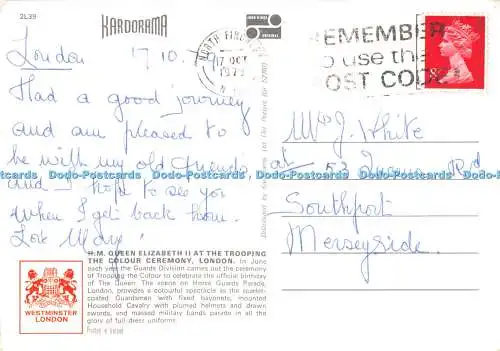 2L39
KARDORAMA
London 17 10
Had a good journey
and am pleased to
be with my old friends
and I hope to see you
when I get back home.
Love Mary
H.M. QUEEN ELIZABETH II AT THE TROOPING
THE COLOUR CEREMONY, LONDON. In June
each year the Guards Division carries out the ceremony
of Trooping the Colour to celebrate the official birthday
of The Queen. The scene on Horse Guards Parade,
London, provides a colourful spectacle as the scarlet-
coated Guardsmen with fixed bayonets, mounted
Household Cavalry with plumed helmets and drawn
swords, and massed military bands parade in all the
glory of full dress uniforms.
WESTMINSTER
LONDON
NORTH
17 OCT
REMEMBER
to use the
POST CODE
Mrs J. White
at 53 Rd
Southport
Merseyside.
Dodo-Postcards Dodo-Postcards Dodo-Postcards Dodo-Postcards Dodo-Postcards Dodo-Postcards